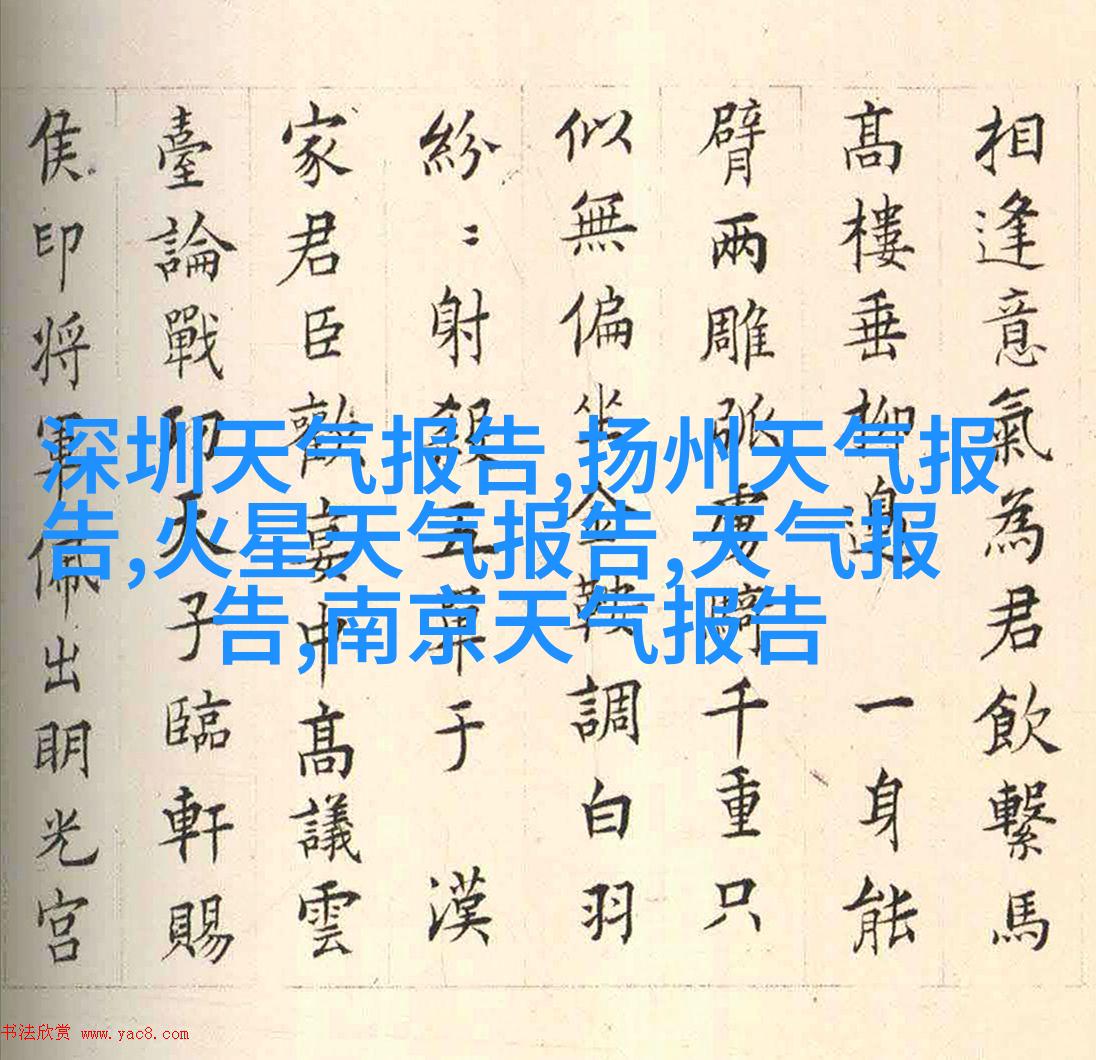 相逢意氣為君飲繫馬
髙樓垂柳邊 一身能
臂兩雕弧虜騎千重只
似無偏坐金鞍調白羽
紛〻射殺五單于 漢
家君臣歡宴申髙議雲
臺論戰功天子臨軒賜
侯印将軍佩出明光宫
深圳天气报告,扬州天气报
告,火星天气报告,天气报
告,南京天气报告
书法欣赏 www.yac8.com